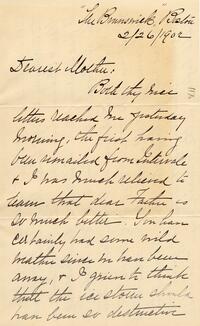 "The Brunswick" Boston
2/26/1902
Dearest Mother:
Both thy nice
letters reached me yesterday
morning, the first having
been remailed from Intervale
& I was much relieved to
learn that dear Father is
so much better. You have
certainly had some wild
weather since we have been
away, & I grieve to think
that the ice storm should
have been so destructive